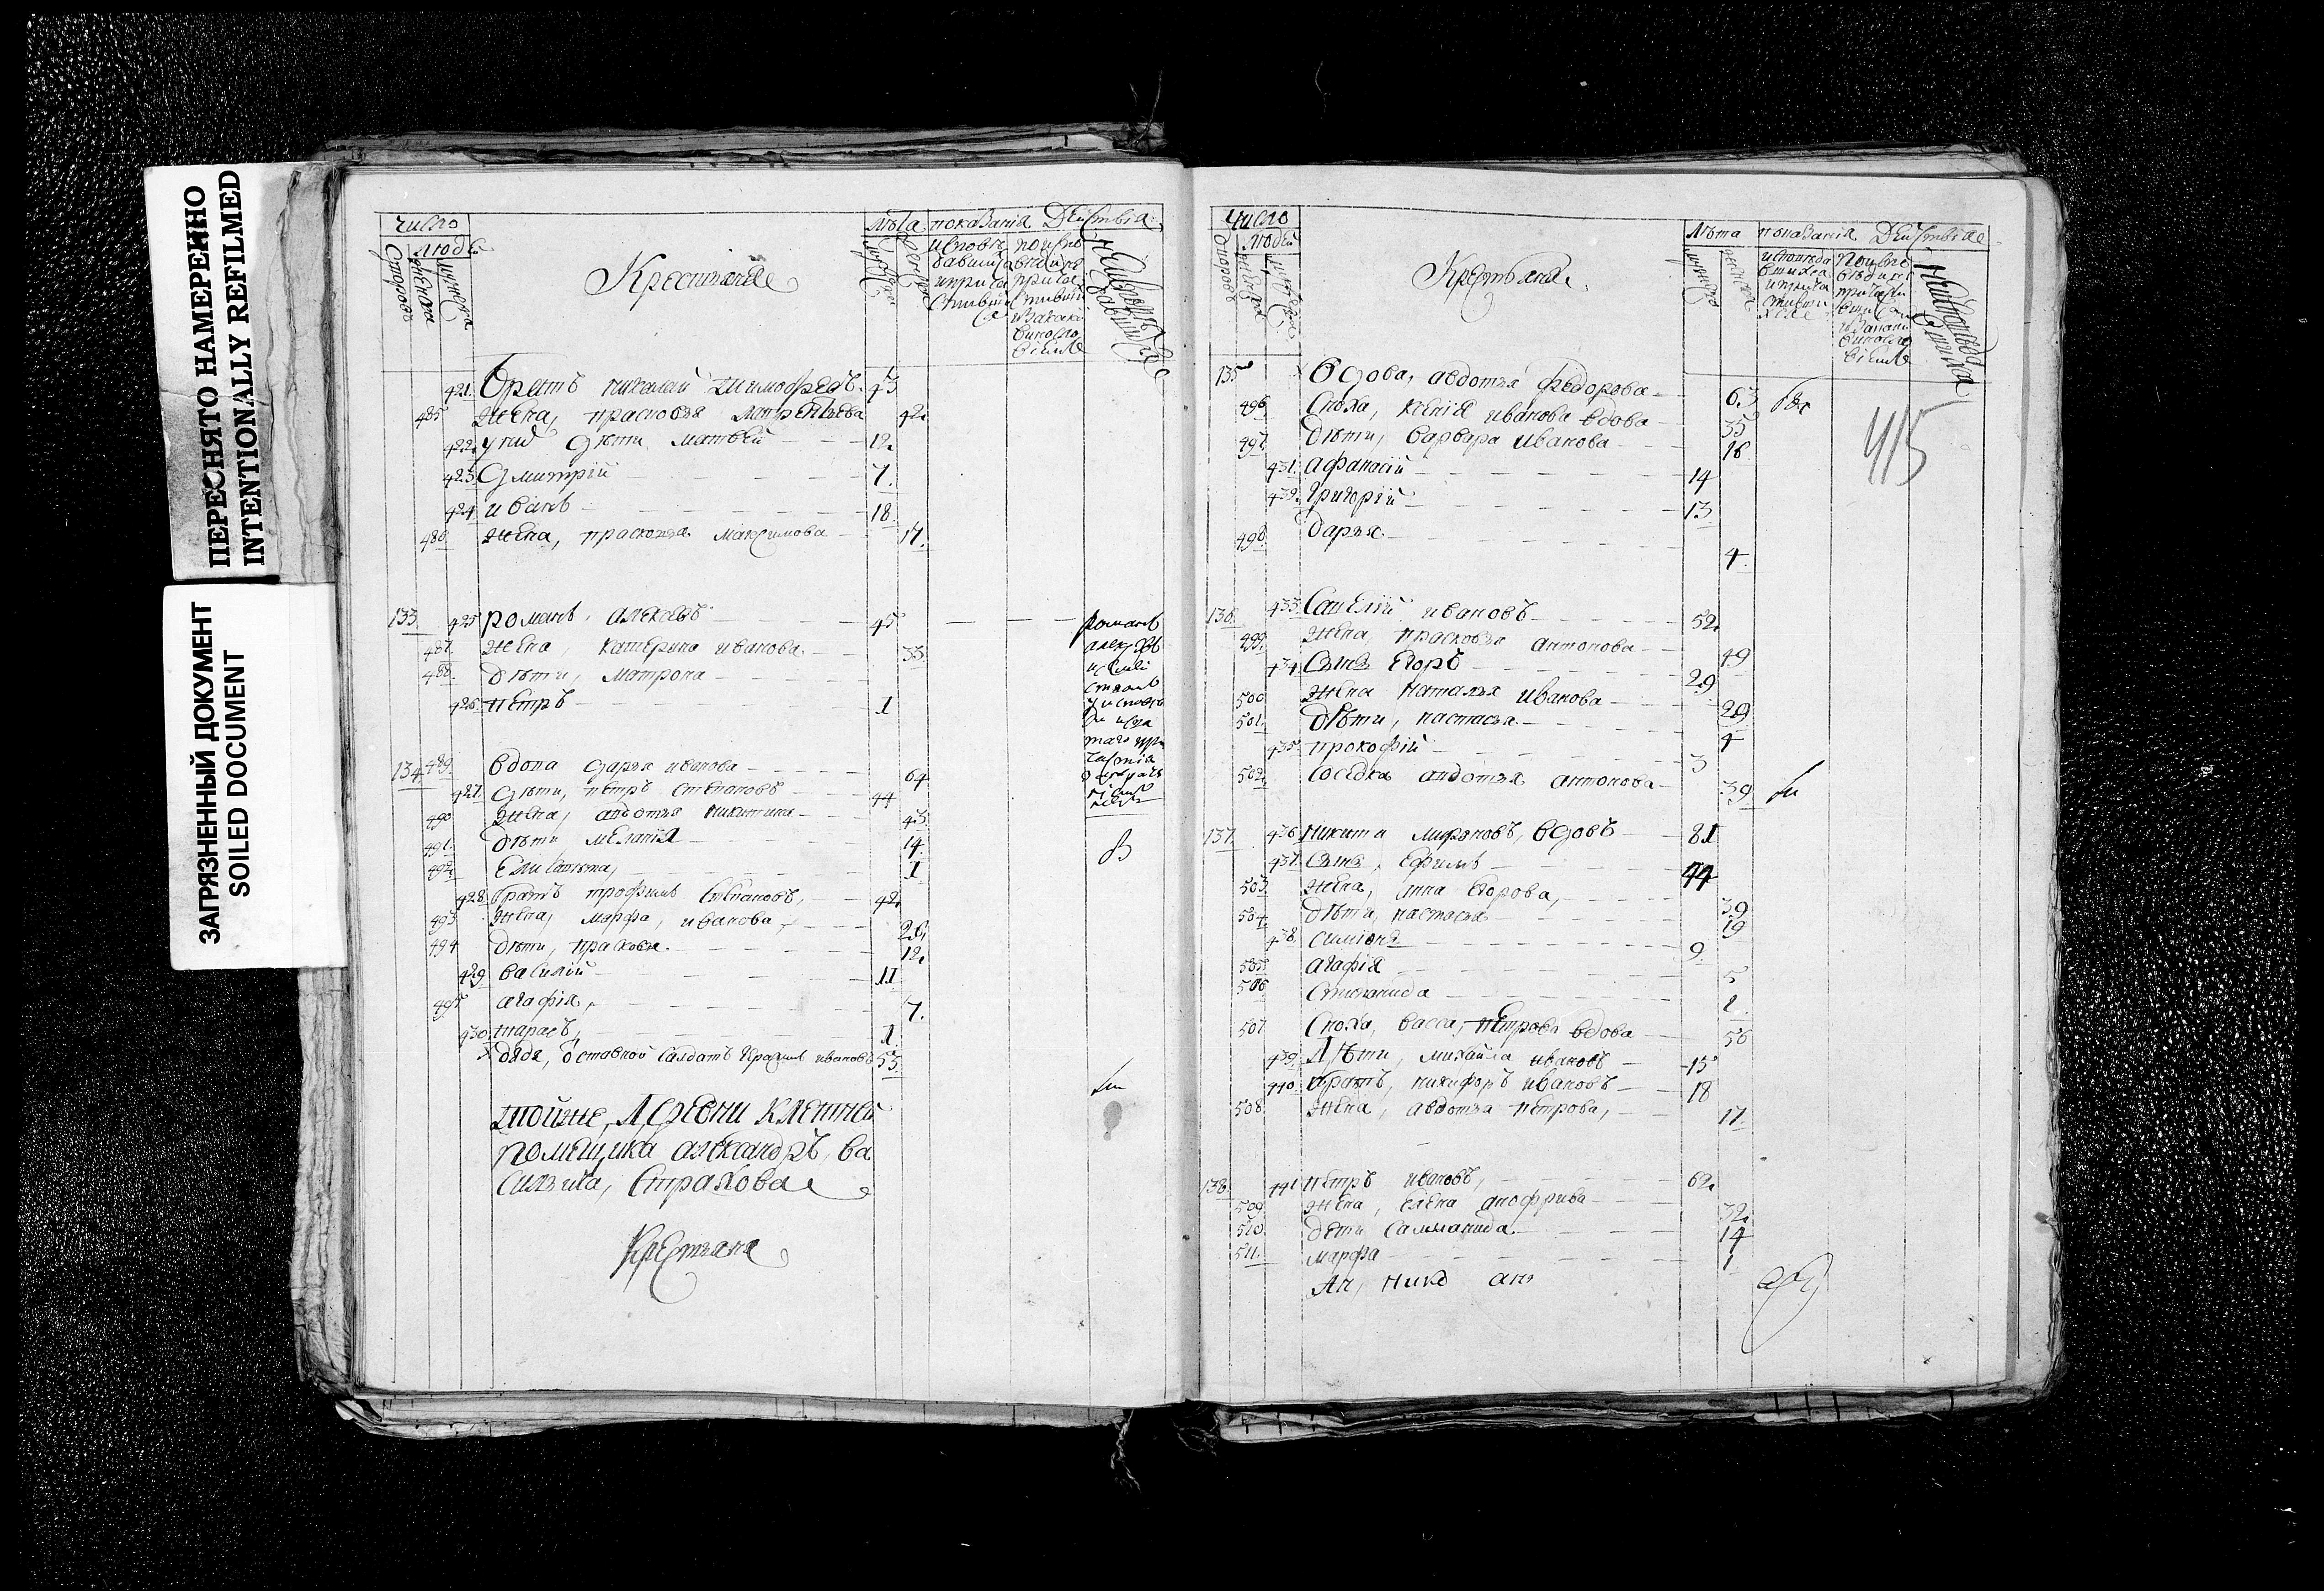 ПЕРЕСНЯТО НАМЕРЕННО
INTENTIONALLY REFILMED
ЗАГРЯЗНЕННЫЙ ДОКУМЕНТ
SOILED DOCUMENT
число
лѣта показанiя Дѣиствiа
Крестьянѣ
421. братъ тимофѣевъ 43
485 жена, прасковья 42
422 у нихъ дѣти матвѣй 12
423 дмитрiй 7.
424 иванъ 18.
486. жена, прасковья максимова 17.
133. 425 романъ алексѣевъ 45
487. жена, катерина иванова 33
488. дѣти, матрона
426. петръ 1
романъ
134 489. вдова дарья иванова 64
427. дѣти, петръ степановъ 44
490 жена, авдотья никитина 43.
491. дѣти меланiя 14.
492. елисавета, 1
428. братъ трофимъ степановъ, 42
493 жена, марфа, иванова, 26,
494 дѣти, прасковья. 12,
429 василiй 11
495 агафiя, 7.
430 тарасъ, 1.
дядя, отставной салдатъ иванов 53.
тойже, деревни
помѣщика александръ, ва
сильича, страхова
крестьяна
число
людей
лѣта показанiя Дѣиствiае
Крестьянѣ
135 вдова, авдотья федорова 63
496 сноха, ксенiя иванова вдова 35
497. дѣти, варвара иванова 16.
431. афанасiй 14
432. григорiй 13
498. дарья 4.
415
136. 433. савелiй ивановъ 52,
499. жена, прасковья антонова 49
434. сынъ егоръ 29
500. жена наталья иванова 29
501. дѣти, настасья 4
435. прокофiй 3
502. соседка авдотья антонова 39
137. 436. никита мироновъ, вдовъ 81
437. сынъ, ефимъ 44
503. жена, анна егорова, 39
504. дѣти, настасья 19
438. симiонъ 9.
505. агафiя 5
506 степанида
507. сноха, васса, петрова вдова 56
439. дѣти, михайла ивановъ 15
440. братъ, никифоръ ивановъ 18
508. жена, авдотья петрова, 17.
138. 441 петръ ивановъ, 62.
509. жена, елена 32,
510. дѣти 14
511. марфа 1